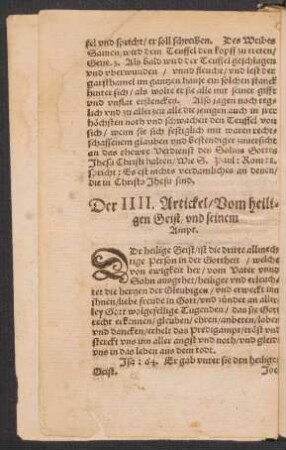 sel vnd spricht/er soll schrecken. Des Weibes
Samen, wird dem Teuffel den kopff zu tretten/
Gene. 3. Als bald wird der Teuffel geschlagen
vnd vberwunden / vnnd fleucht/ vnd lest der
gantzen hause ein solchen stanck
hinter sich/ als wolte er sie alle mit seiner gifft
vnd vnflat erstencken. Also jagen noch teg-
lich vnd zu aller zeit alle die jenigen auch in jrer
höchsten noth vnd schwacheit den Teuffel von
sich/ wenn sie sich festiglich mit waren recht-
schaffenem glauben vnd bestendiger zuuersicht
an das thewre Verdienst des Sohns Gottes
Jhesu Christi halten/ Wie S. Paul: Rom: 8.
spricht: Es ist nichts verdamliches an denen/
die in Christo Jhesu sind.
Der IIII. Artickel/ Vom heili-
gen Geist, vnd seinem
Ampt.
DEr heilige Geist/ ist die dritte allmech-
tige Person in der Gottheit / welche
von ewigkeit her/ vom Vater vnnd
Sohn ausgehet/ heiliget vnd erleuch-
tet die hertzen der Gleubigen/ vnd erweckt inn
ihnen/ liebe freude in Gott/ vnd zündet an aller-
ley Gott wolgefellige Tugenden/ das sie Gott
recht erkennen/ gleuben/ ehren/ anbeten/ loben
vnd dancken/ erhelt das Predigampt/ tröst vnd
sterckt vns inn aller angst vnd noth/ vnd gleid
vns in das leben aus dem todt.
Isa: 64. Er gab vnter sie den heiligen
Geist. Joe